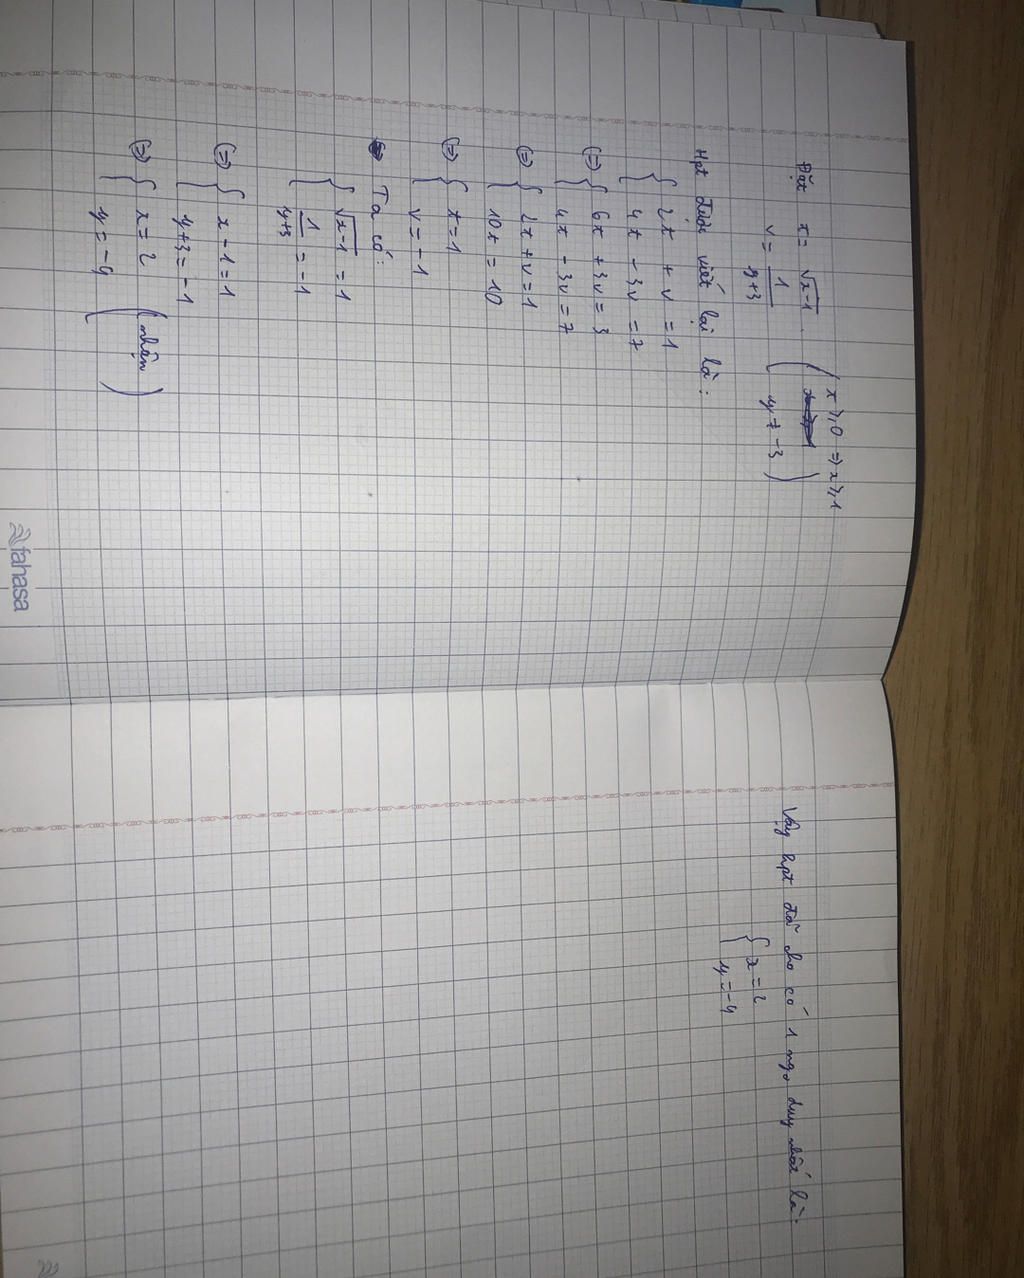 Đặt t = √x-1 (t ⩾ 0 ⇒ x ⩾ 1
v = 1/y+3 y ≠ -3)
Hpt được viết lại là:
{ 2t + v = 1
4t - 3v = 7
(=) { 6t + 3v = 3
4t - 3v = 7
(=) { 2t + v = 1
10t = 10
(=) { t = 1
v = -1
Ta có:
{ √x-1 = 1
1/y+3 = -1
(=) { x - 1 = 1
y+3 = -1
(=) { x = 2 (nhận)
y = -4
fahasa
Vậy hpt đã cho có 1 ngo duy nhất là:
{ x = 2
y = -4